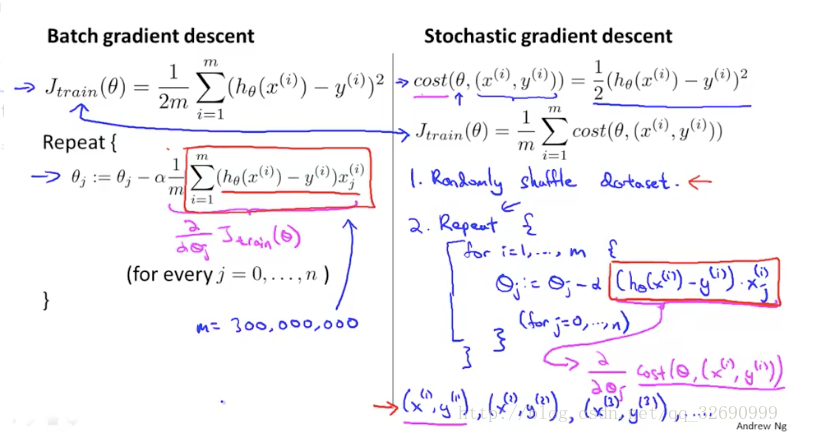 Batch gradient descent
J_train(θ) = 1/2m ∑_{i=1}^{m} (h_θ(x^(i)) − y^(i))²
Repeat {
θ_j := θ_j − α 1/m ∑_{i=1}^{m} (h_θ(x^(i)) − y^(i))x_j^(i)
∂/∂θ_j J_train(θ)
(for every j = 0, . . . , n )
}
m = 300,000,000
Stochastic gradient descent
cost(θ, (x^(i), y^(i))) = 1/2 (h_θ(x^(i)) − y^(i))²
J_train(θ) = 1/m ∑_{i=1}^{m} cost(θ, (x^(i), y^(i)))
1. Randomly shuffle dataset.
2. Repeat {
for i=1,...,m {
θ_j := θ_j − α (h_θ(x^(i)) − y^(i)) · x_j^(i)
(for j=0,...,n)
}
}
∂/∂θ_j cost(θ, (x^(i), y^(i)))
(x^(1), y^(1)), (x^(2), y^(2)), (x^(3), y^(3)), ...
http://blog.csdn.net/qq_32690999
Andrew Ng